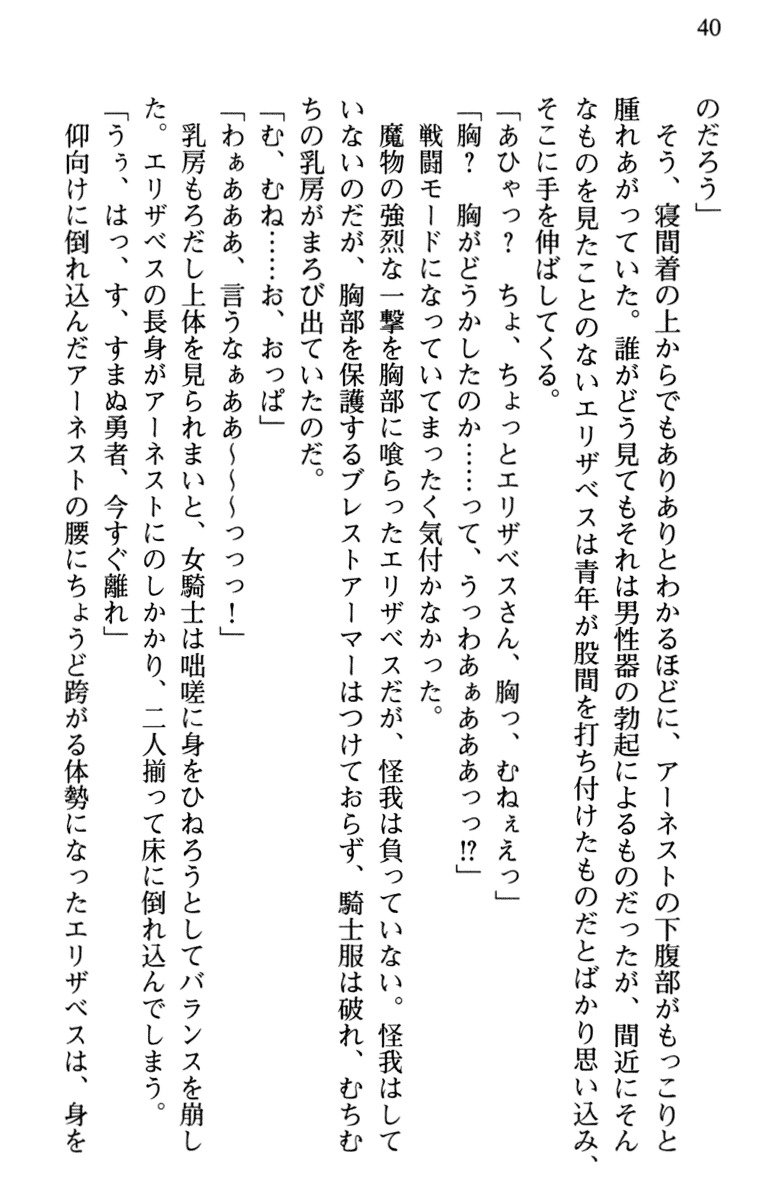 40
のだろう」
　そう、寝間着の上からでもありありとわかるほどに、アーネストの下腹部がもっこりと
腫れあがっていた。誰がどう見てもそれは男性器の勃起によるものだったが、間近にそん
なものを見たことのないエリザベスは青年が股間を打ち付けたものだとばかり思い込み、
そこに手を伸ばしてくる。
「あひゃっ？　ちょ、ちょっとエリザベスさん、胸っ、むねぇえっ」
「胸？　胸がどうかしたのか……って、うっわあぁあああっっ!?」
　戦闘モードになっていてまったく気付かなかった。
　魔物の強烈な一撃を胸部に喰らったエリザベスだが、怪我は負っていない。怪我はして
いないのだが、胸部を保護するブレストアーマーはつけておらず、騎士服は破れ、むちむ
ちの乳房がまろび出ていたのだ。
「む、むね……お、おっぱ」
「わぁあああ、言うなぁああ～～～っっっ！」
　乳房もろだし上体を見られまいと、女騎士は咄嗟に身をひねろうとしてバランスを崩し
た。エリザベスの長身がアーネストにのしかかり、二人揃って床に倒れ込んでしまう。
「うぅ、はっ、す、すまぬ勇者、今すぐ離れ」
　仰向けに倒れ込んだアーネストの腰にちょうど跨がる体勢になったエリザベスは、身を